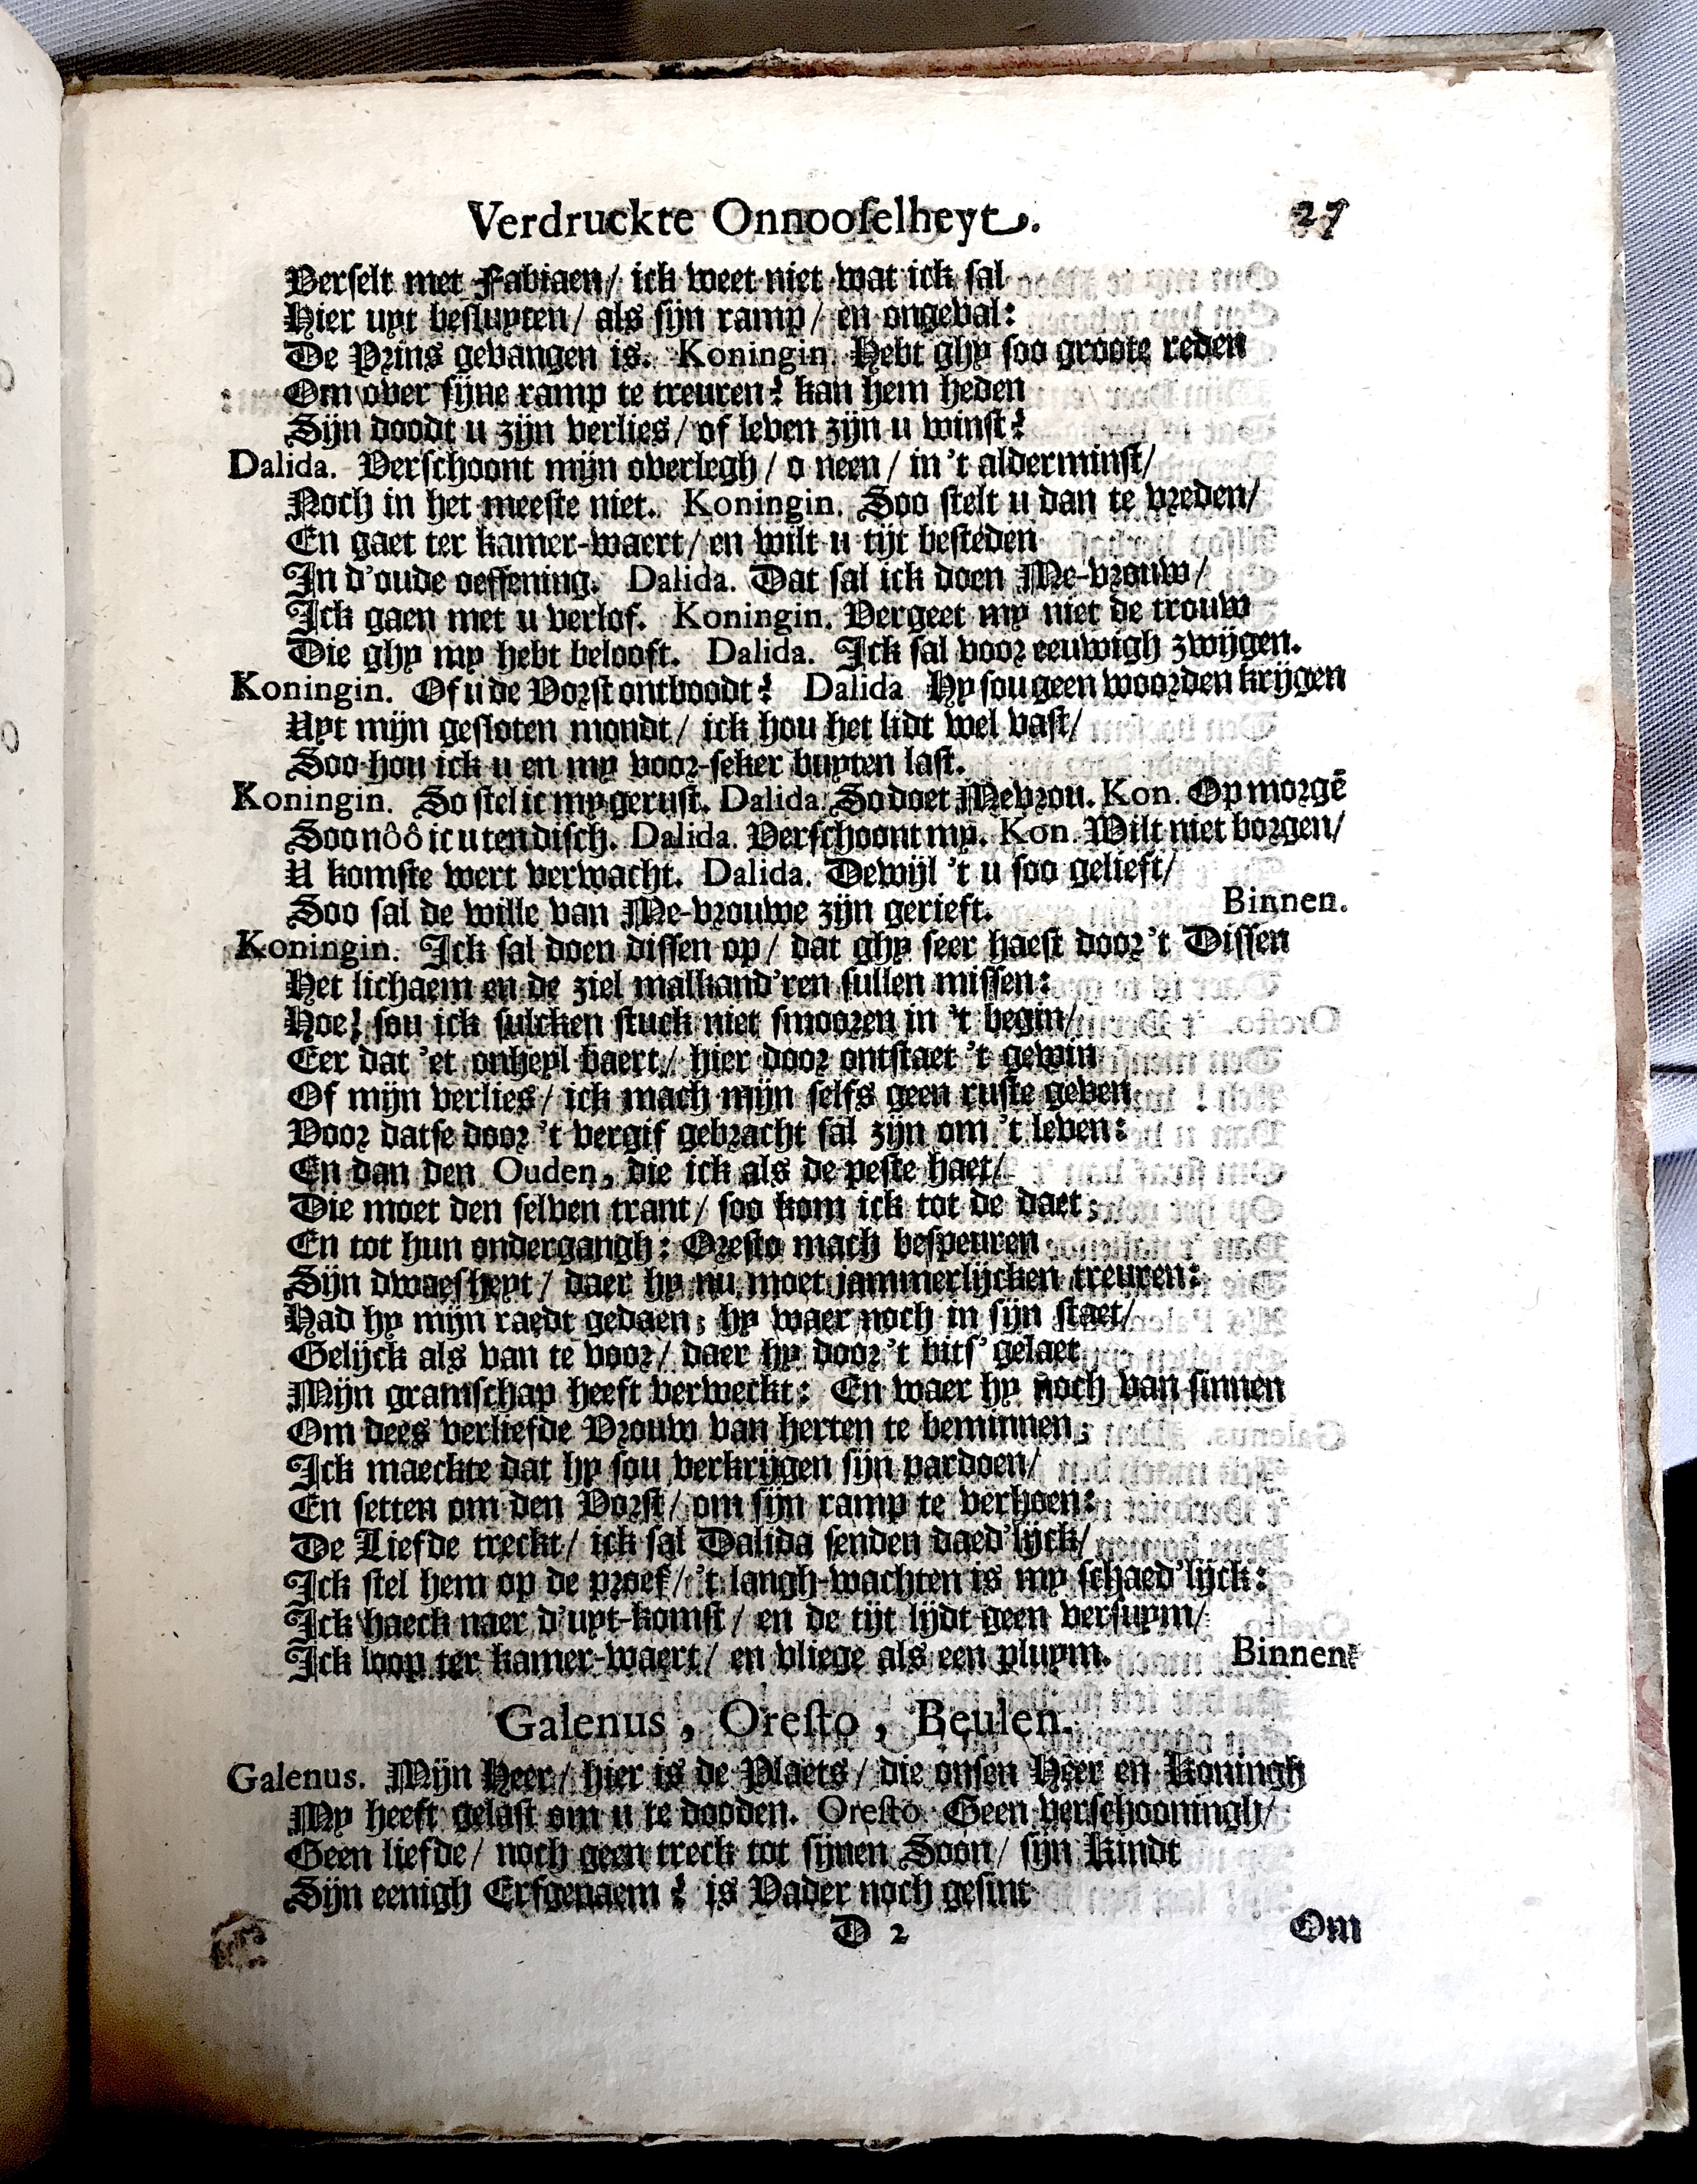 Verdruckte Onnooſelheyt. 27
Verſelt met Fabiaen/ ick weet niet wat ick ſal
Hier uyt beſluyten/ als ſijn ramp/ en ongeval:
De Prins gevangen is. Koningin. Hebt ghy ſoo groote reden
Om over ſijne ramp te treuren? kan hem heden
Sijn doodt u zijn verlies/ of leven zijn u winſt?
Dalida. Verſchoont mijn overlegh/ o neen/ in 't alderminſt/
Noch in het meeſte niet. Koningin. Soo ſtelt u dan te vreden/
En gaet ter kamer-waert/ en wilt u tijt beſteden
In d'oude oeffening. Dalida. Dat ſal ick doen Me-vrouw/
Ick gaen met u verlof. Koningin. Vergeet my niet de trouw
Die ghy my hebt belooft. Dalida. Ick ſal voor eeuwigh zwijgen.
Koningin. Of u de Vorſt ontboodt? Dalida Hy ſou geen woorden krijgen
Uyt mijn geſloten mondt/ ick hou het lidt wel vaſt/
Soo hou ick u en my voor-ſeker buyten laſt.
Koningin. So ſtel ic my geruſt. Dalida. So doet Mevrou. Kon. Op morgẽ
Soo nôô ic u ten diſch. Dalida. Verſchoont my. Kon. Wilt niet borgen/
U komſte wert verwacht. Dalida. Dewijl 't u ſoo gelieft/
Soo ſal de wille van Me-vrouwe zijn gerieft. Binnen.
Koningin. Ick ſal doen diſſen op/ dat ghy ſeer haeſt door 't Diſſen
Het lichaem en de ziel malkand'ren ſullen miſſen:
Hoe! ſou ick ſulcken ſtuck niet ſmooren in 't begin/
Eer dat 'et onheyl baert/ hier door ontſtaet 't gewin
Of mijn verlies/ ick mach mijn ſelfs geen ruſte geven
Voor datſe door 't vergif gebracht ſal zijn om 't leven:
En dan den Ouden, die ick als de peſte haet/
Die moet den ſelven trant/ ſoo kom ick tot de daet;
En tot hun ondergangh: Oreſto mach beſpeuren
Sijn dwaeſheyt/ daer hy nu moet jammerlijcken treuren:
Had hy mijn raedt gedaen; hy waer noch in ſijn ſtaet/
Gelijck als van te voor/ daer hy door 't bitſ' gelaet
Mijn gramſchap heeft verweckt: En waer hy noch van ſinnen
Om dees verliefde Vrouw van herten te beminnen;
Ick maeckte dat hy ſou verkrijgen ſijn pardoen/
En ſetten om den Vorſt/ om ſijn ramp te verhoen:
De Liefde treckt/ ick ſal Dalida ſenden daed'lijck/
Ick ſtel hem op de proef/ 't langh-wachten is my ſchaed'lijck:
Ick haeck naer d'uyt-komſt/ en de tijt lijdt geen verſuym/
Ick loop ter kamer-waert/ en vliege als een pluym. Binnen.
Galenus, Oreſto, Beulen.
Galenus. Mijn Heer/ hier is de Plaets/ die onſen Heer en Koningh
My heeft gelaſt om u te dooden. Oreſto Geen verſchooningh/
Geen liefde/ noch geen treck tot ſijnen Soon/ ſijn Kindt
Sijn eenigh Erfgenaem? is Vader noch geſint
D 2 Om